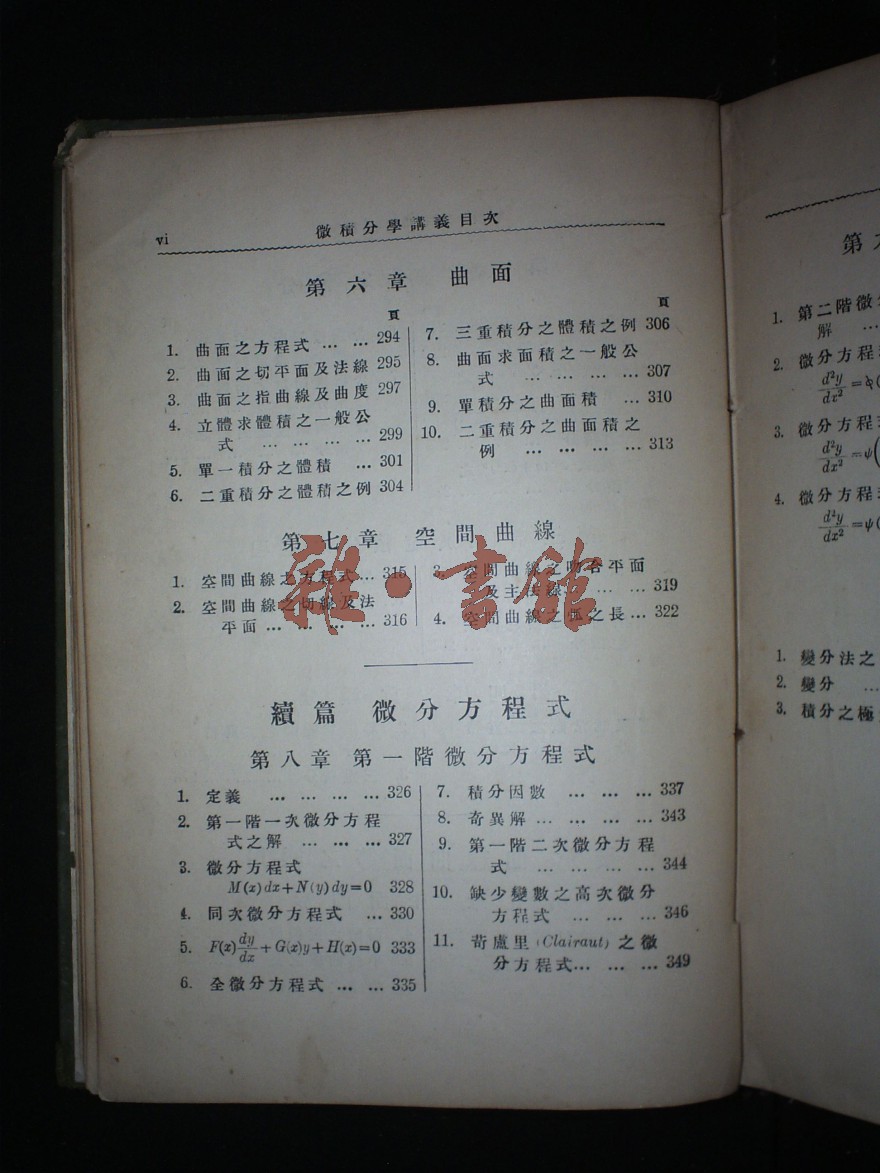 vi
微積分學講義目次
第六章 曲面
頁
1. 曲面之方程式 … … 294
2. 曲面之切平面及法線 295
3. 曲面之指曲線及曲度 297
4. 立體求體積之一般公
式 … … … … 299
5. 單一積分之體積 … 301
6. 二重積分之體積之例 304
頁
7. 三重積分之體積之例 306
8. 曲面求面積之一般公
式 … … … … 307
9. 單積分之曲面積 … 310
10. 二重積分之曲面積之
例 … … … … 313
第七章 空間曲線
1. 空間曲線之方程式… 315
2. 空間曲線之切線及法
平面 … … … … 316
3. 空間曲線之吻合平面
及主法線 … … … 319
4. 空間曲線之弧之長 … 322
雜·書館
續篇 微分方程式
第八章 第一階微分方程式
1. 定義 … … … … 326
2. 第一階一次微分方程
式之解 … … … 327
3. 微分方程式
M(x)dx+N(y)dy=0 328
4. 同次微分方程式 … 330
5. F(x)dy/dx+G(x)y+H(x)=0 333
6. 全微分方程式 … … 335
7. 積分因數 … … … 337
8. 奇異解 … … … … 343
9. 第一階二次微分方程
式 … … … … 344
10. 缺少變數之高次微分
方程式 … … … 346
11. 苛盧里 (Clairaut) 之微
分方程式… … … 349
第
1. 第二階微
解 …
2. 微分方程
d²y/dx² =
3. 微分方程
d²y/dx² =ψ(
4. 微分方程
d²y/dx² =ψ(
1. 變分法之
2. 變分 …
3. 積分之極